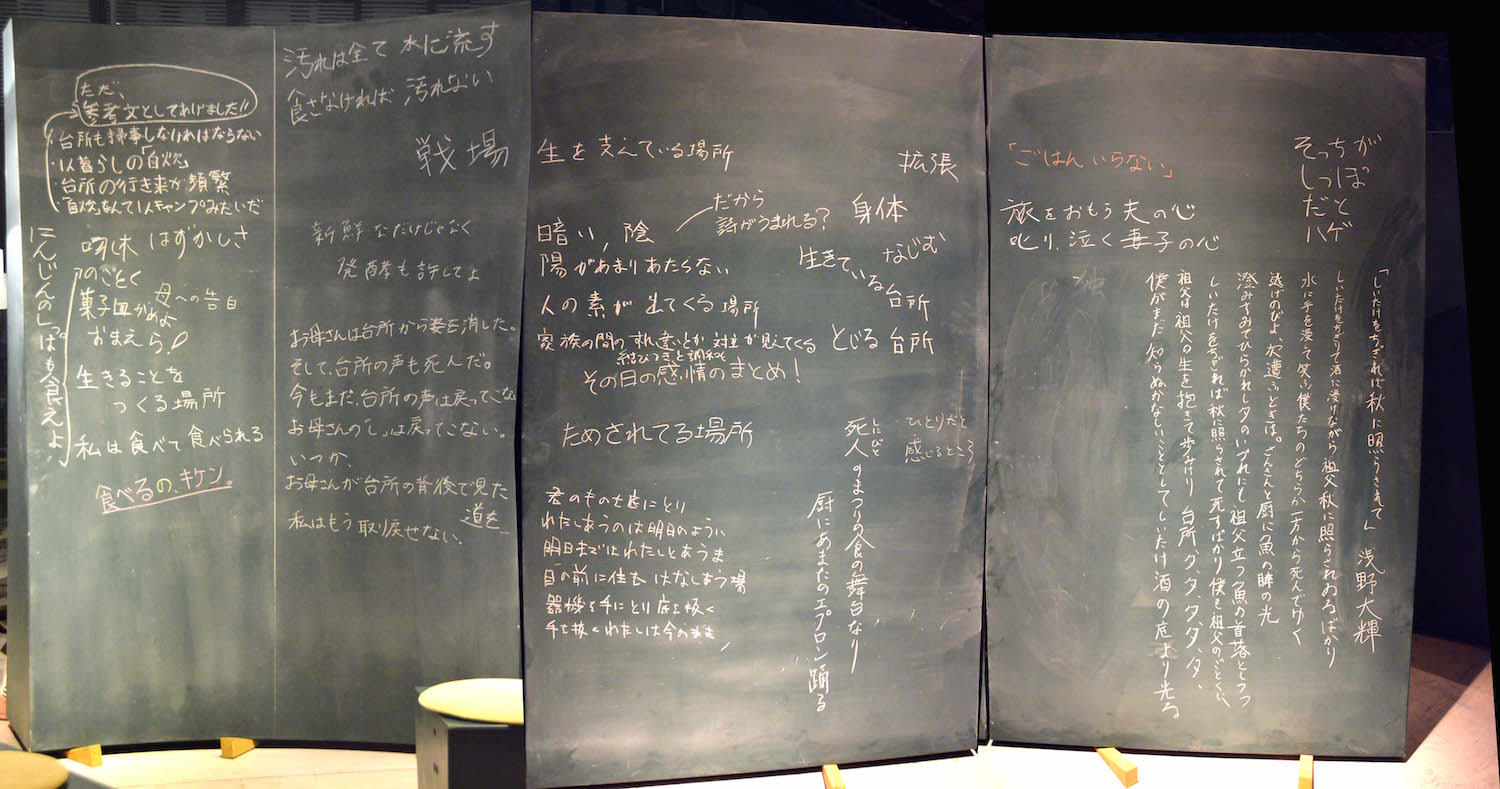 ただ、
参考文としてあげました!!
・台所も掃事しなければならない
・1人暮らしの「自炊」
・台所の行き来が頻繁
・「自炊」なんて1人キャンプみたいだ
にんじんのしっぽも食えよ。
はずかしさ
のごとく
菓子皿かめよ
母への告白
おまえら!
生きることを
つくる場所
私は食べて食べられる
食べるの、キケン。
汚れは全て水に流す
食さなければ 汚れない
戦場
新鮮なだけじゃなく
発酵も許してよ
お母さんは台所から姿を消した。
そして、台所の声も死んだ。
今もまだ、台所の声は戻ってこない
お母さんの「し」は戻ってこない。
いつか、
お母さんが台所の背後で見た
道を
私はもう取り戻せない。
生を支えている場所
拡張
だから
詩がうまれる?
身体
暗い、陰
陽があまりあたらない
生きている
なじむ
台所
人の素が出てくる場所
家族の間のすれ違いとか対立が見えてくる
結びつきと調和も
とじる台所
その日の感情のまとめ!
ためされてる場所
ひとりだと
感じるところ
死人のまつりの食の舞台なり
厨にあまたのエプロン踊る
君のものを底にとり
わたしあうのは明日のように
明日まではわたしとあうま
目の前に住む はなしあう場
器機を手にとり底を抜く
手を抜くわたしは今のまま
「ごはんいらない」
旅をおもう夫の心
叱り、泣く妻子の心
そっちが
しっぽ
だと
ハゲ
「しいたけをちぎれば秋に照らされて」 浅野大輝
しいたけをちぎりて酒に浸けながら祖父秋に照らされゐるばかり
水に手を浸して笑ふ僕たちのどちらか一方から死んでゆく
逃げのびよ、犬遭ふどきは。ごんごんと厨に魚の眸の光
澄みてみてひらかれし夕のいづれにも祖父立つ魚の首落としつつ
しいたけをちぎれば秋に照らされて死すばかり僕も祖父のごとくに、
祖父は祖父の生を抱きて歩みけり 台所、ダ、タ、タ、タ、タ、
僕がまだ知らぬかなしいこととしてしいたけ酒の底より光る